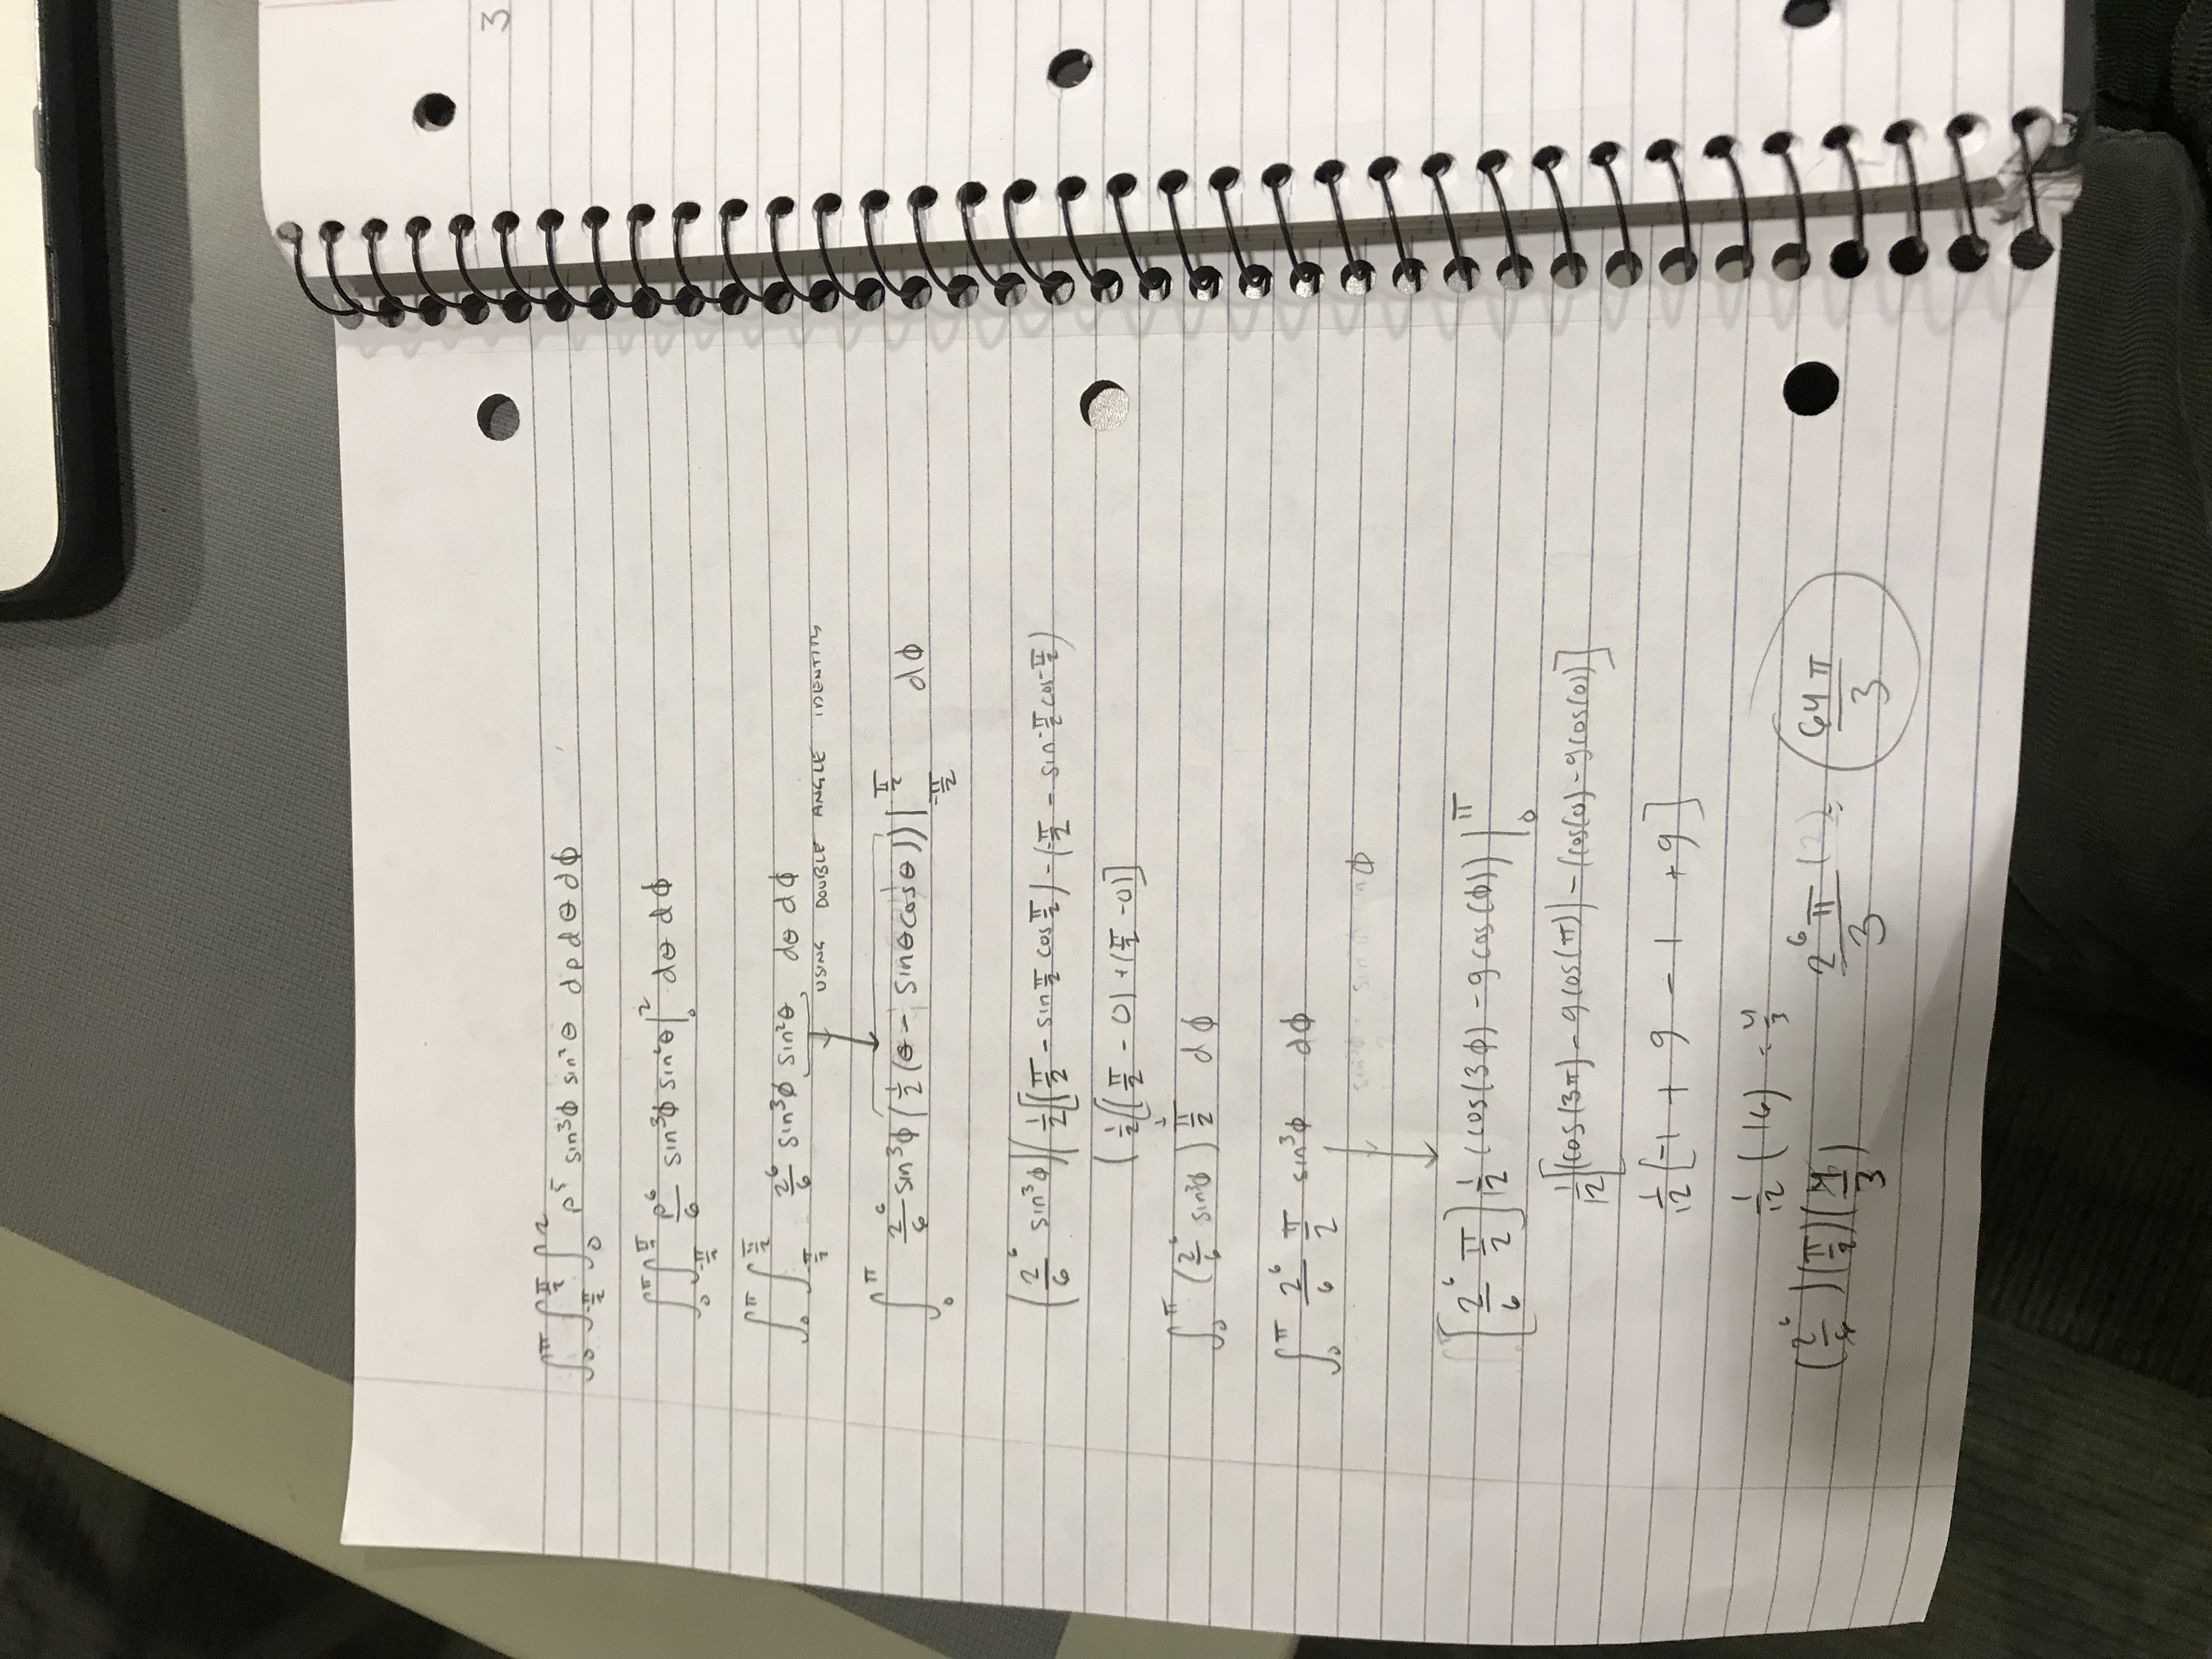 ∫₀^π ∫_{-π/2}^{π/2} ∫₀² ρ⁵ sin³φ sin²θ dρ dθ dφ
∫₀^π ∫_{-π/2}^{π/2} ρ⁶/6 sin³φ sin²θ |₀² dθ dφ
∫₀^π ∫_{-π/2}^{π/2} 2⁶/6 sin³φ sin²θ dθ dφ
USING DOUBLE ANGLE IDENTITY
∫₀^π 2⁶/6 sin³φ (1/2 (θ - sinθcosθ)) |_{-π/2}^{π/2} dφ
(2⁶/6 sin³φ)(1/2[(π/2 - sin π/2 cos π/2) - (-π/2 - sin -π/2 cos -π/2)
(1/2[(π/2 - 0) + (π/2 - 0)]
∫₀^π (2⁶/6 sin³φ) π/2 dφ
∫₀^π 2⁶/6 π/2 sin³φ dφ
φ
[2⁶/6 π/2] 1/12 (cos(3φ) - 9cos(φ)) |₀^π
1/12[(cos(3π) - 9cos(π)) - (cos(0) - 9cos(0))]
1/12 [-1 + 9 - 1 + 9]
1/12 (16) = 4/3
(2⁶/6)(π/2)(4/3) 2⁶π/3 (2) = 64π/3
3